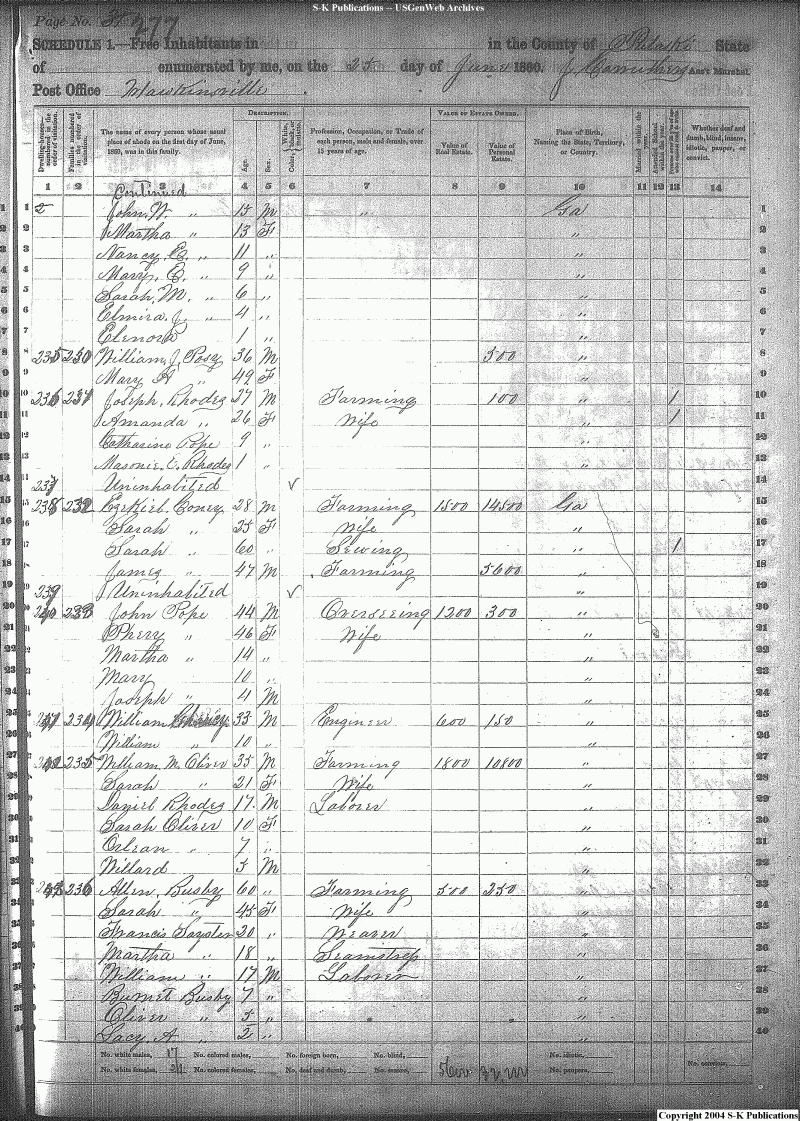 S-K Publications -- USGenWeb Archives
Page No. 35 277
SCHEDULE 1.—Free Inhabitants in in the County of Pulaski State
of enumerated by me, on the 25 day of June 1860. J Carruthers Ass't Marshal.
Post Office Hawkinsville
Dwelling-houses—numbered in the order of visitation.
Families numbered in the order of visitation.
The name of every person whose usual place of abode on the first day of June, 1860, was in this family.
DESCRIPTION.
Age.
Sex.
Profession, Occupation, or Trade of each person, male and female, over 15 years of age.
VALUE OF ESTATE OWNED.
Value of Real Estate.
Value of Personal Estate.
Place of Birth, Naming the State, Territory, or Country.
Married within the year.
Attended School within the year.
Whether deaf and dumb, blind, insane, idiotic, pauper, or convict.
1 2 3 4 5 6 7 8 9 10 11 12 13 14
Continued
1 2 John W. " 15 M " Ga 1
2 Martha " 13 F " 2
3 Nancy E. " 11 " " 3
4 Mary E. " 9 " " 4
5 Sarah M. " 6 " " 5
6 Elmira J. " 4 " " 6
7 Elenora 1 " " 7
8 235 230 William J. Posy 36 M 500 " 8
9 Mary A " 49 F " 9
10 236 231 Joseph Rhodes 27 M Farming 100 " 1 10
11 Amanda " 26 F Wife " 1 11
12 Catharine Pope 9 " " 12
13 E. Rhodes 1 " " 13
14 237 Uninhabited ✓ 14
15 238 232 Ezekiel Coney 28 M Farming 1500 14500 Ga 15
16 Sarah " 25 F Wife " 16
17 Sarah " 60 " Sewing " 1 17
18 James " 47 M Farming 5600 " 18
19 239 Uninhabited ✓ " 19
20 240 233 John Pope 44 M Overseeing 1200 300 " 20
21 Phery " 46 F Wife " 21
22 Martha " 14 " " 22
23 Mary 10 " " 23
24 Joseph " 4 M " 24
25 241 234 William 33 M Engineer 600 150 " 25
26 William " 10 " " 26
27 242 235 William M. Oliver 35 M Farming 1800 10800 " 27
28 Sarah " 21 F Wife " 28
29 Daniel Rhodes 17 M Laborer " 29
30 Sarah Oliver 10 F " 30
31 Orlean " 7 " " 31
32 Willard 5 M " 32
33 243 236 Allen Busby 60 " Farming 500 250 " 33
34 Sarah " 45 F Wife " 34
35 Francis 20 " Weaver " 35
36 Martha " 18 " Seamstress " 36
37 William " 17 M Laborer " 37
38 Burnet Busby 7 " " 38
39 Oliver " 5 " " 39
40 Lacy A " 2 " " 40
No. white males, 17 No. colored males, No. foreign born, No. blind, No. idiotic,
No. white females, No. colored females, No. deaf and dumb, No. insane, No. paupers, No. convicts,
Copyright 2004 S-K Publications